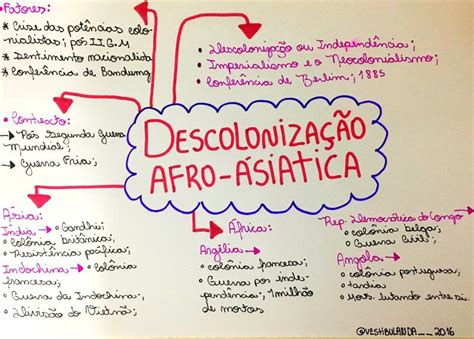 • Fatores:
* Crise das potências colo-
nialistas; pós II G.M
* Sentimento nacionalista
* Conferência de Bandung;
• Descolonização ou Independência;
• Imperialismo e o Neocolonialismo;
• Conferência de Berlim; 1885
• Contexto:
→ Pós Segunda Guerra
Mundial;
→ Guerra Fria;
DESCOLONIZAÇÃO
AFRO-ÁSIATICA
Ásia:
Índia → • Gandhi;
• Colônia britânica;
• Resistência pacífica;
Indochina → • Colônia
francesa;
• Guerra da Indochina;
• Divisão do Vietnã;
África:
Argélia →
• colônia francesa;
• Guerra por inde-
pendência; 1 milhão
de mortos
Rep. Democrática do Congo →
• colônia belga;
• Guerra Civil;
Angola →
• colônia portuguesa;
• tardia
• Movs. lutando entre si.
@VESTIBULANDA__2016